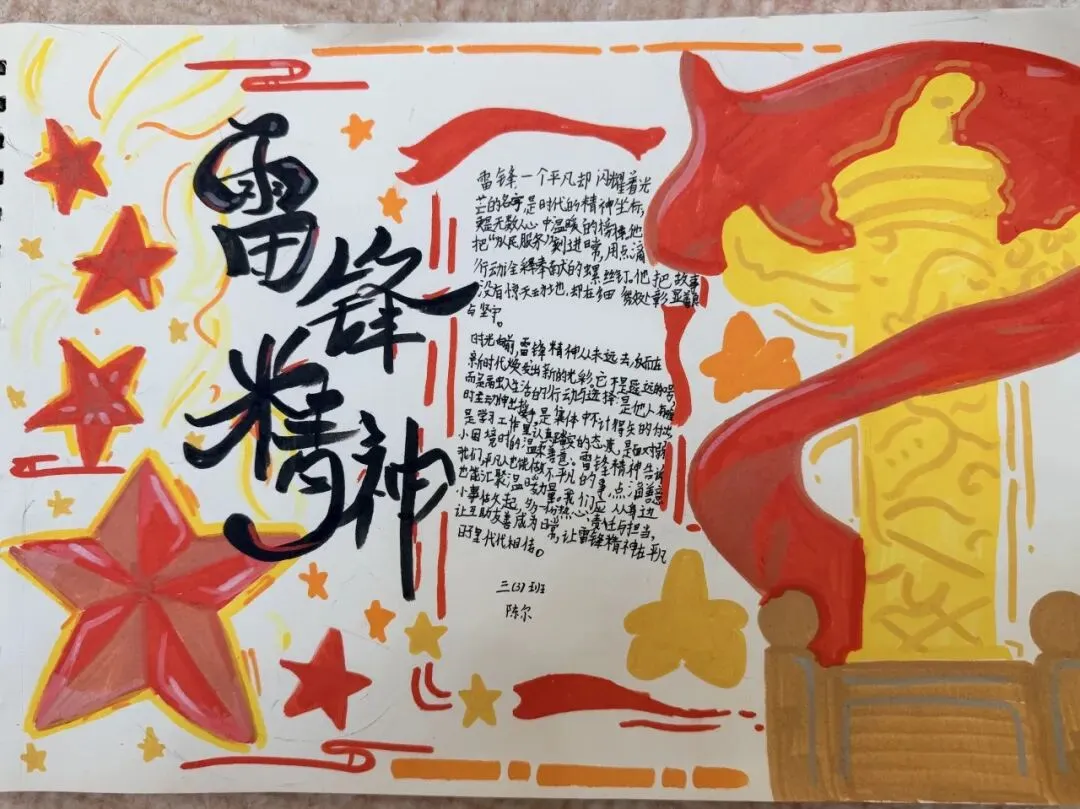 雷锋精神
雷锋,一个平凡却闪耀着光
芒的名字,是时代的精神坐标,
是无数人心中温暖的榜样。他
把“为人民服务”刻进日常,用点滴
行动诠释奉献的螺丝钉。他把故事
没有惊天动地,却在细微处彰显善良
与坚守。
时光向前,雷锋精神从未远去,反而在
新时代焕发出新的光彩。它不是遥远的口号,
而是融入生活的行动与选择:是他人有难
时主动伸出援手,是集体中不计得失的付出
是学习工作里认真踏实的态度,是面对弱
小困境时的温柔善意。雷锋精神告诉
我们,平凡也能做不平凡的事,点滴善意
也能汇聚温暖力量。我们应从身边
小事做起,多一份热心、责任与担当,
让互助友善成为日常,让雷锋精神在平凡
日子里代代相传。
三(3)班
陈尔